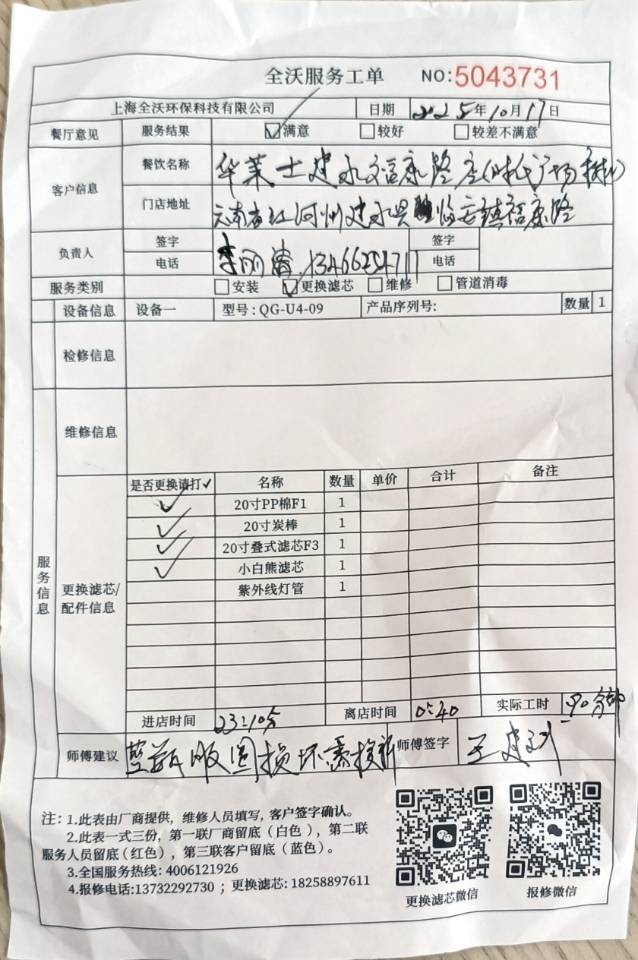 全沃服务工单 NO:5043731
上海全沃环保科技有限公司 日期 2025年10月17日
餐厅意见 服务结果 ☑满意 □较好 □较差不满意
客户信息 餐饮名称 华莱士建水福康路店(时代广场
门店地址 云南省红河州建水县临安镇福康路
负责人 签字 签字
电话 李丽 13466254711 电话
服务类别 □安装 ☑更换滤芯 □维修 □管道消毒
设备信息 设备一 型号:QG-U4-09 产品序列号: 数量 1
检修信息
维修信息
服务信息
更换滤芯/配件信息
是否更换请打✓ 名称 数量 单价 合计 备注
✓ 20寸PP棉F1 1
✓ 20寸炭棒 1
✓ 20寸叠式滤芯F3 1
✓ 小白熊滤芯 1
紫外线灯管 1
进店时间 23:10分 离店时间 0:40 实际工时 90分钟
师傅建议 损坏需换新 师傅签字 王建
注:1.此表由厂商提供，维修人员填写，客户签字确认。
2.此表一式三份，第一联厂商留底(白色)，第二联
服务人员留底(红色)，第三联客户留底(蓝色)。
3.全国服务热线:4006121926
4.报修电话:13732292730 ; 更换滤芯: 18258897611
更换滤芯微信 报修微信